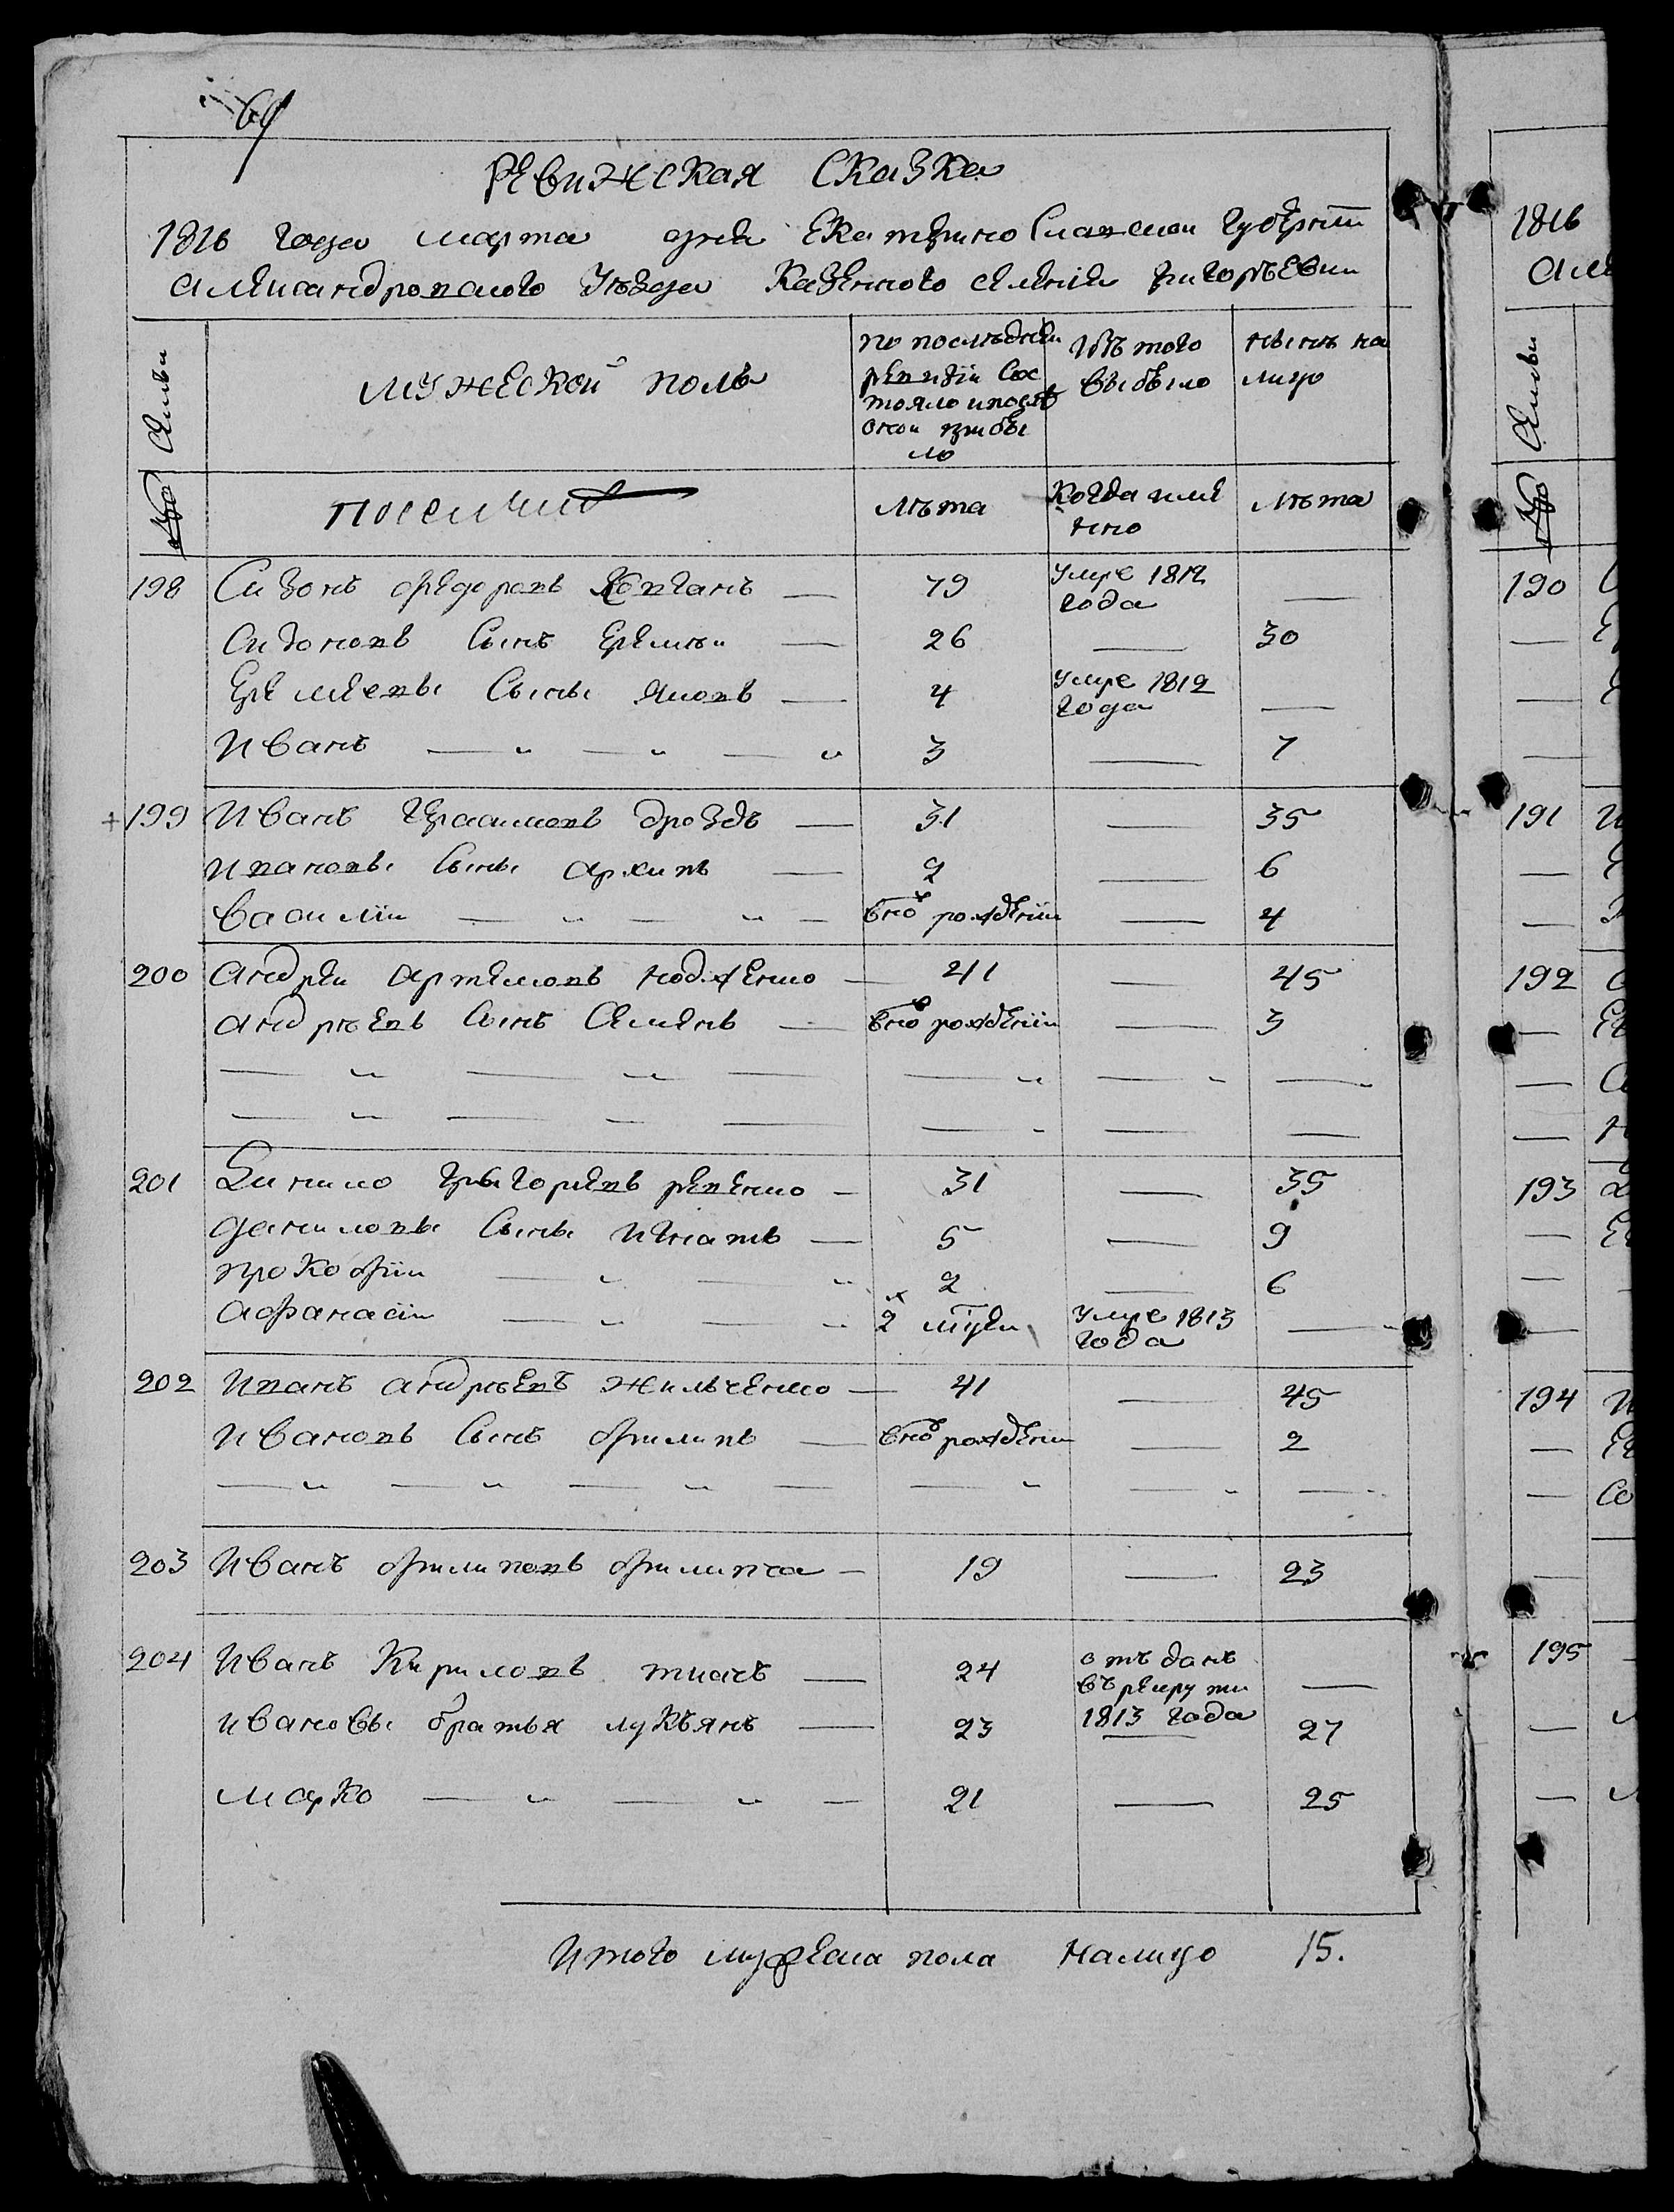 69
Ревижская Сказка
1816 года марта дня Екатерино Славской губернии
Александровского уѣзда Казенного селения Григорьевки
Семьи
мужеской полъ
по последней ревизiи состояло и после оной прибыло
изъ того выбыло
нынѣ на лицо
№
лѣта
Когда имянно
лѣта
198 Сидонъ Федоровъ — 79 умре 1812 года —
Сидоновъ Сынъ Еремѣй — 26 — 30
Еремѣевы Сыны Яковъ — 4 умре 1812 года —
Иванъ — „ — „ — „ 3 — 7
+199 Иванъ Герасимовъ Дроздъ — 31 — 35
Ивановы Сыны Архипъ — 2 — 6
Василiй — „ — „ — вно рожденiй — 4
200 Андрей Артемовъ — 41 — 45
Андрѣевъ Сынъ Семенъ — вно рожденiй — 3
— „ — „ — — „ — „ — „
— „ — „ — — „ — —
201 Данило Григорьевъ Ревенко — 31 — 35
Даниловы Сыны Игнатъ — 5 — 9
Прокофiй — „ — „ 2 — 6
Афанасiй — „ — „ 2 мцен умре 1813 года — „
202 Иванъ Андрѣевъ Жильченко — 41 — 45
Ивановъ Сынъ Филипъ — вно рожденiй — 2
— „ — „ — „ — — „ — „ — „
203 Иванъ Филиповъ Филипча — 19 — 23
204 Иванъ Кириловъ Ткачъ — 24 отъ данъ въ рекруты 1813 года —
Ивановы братья Лукъянъ — 23 — 27
Марко — „ — „ — 21 — 25
Итого мужеска пола налицо 15.
1816
Але
Семьи
№
190
—
—
—
191
—
—
192
—
—
—
193
—
—
—
194
—
—
—
195
—
—